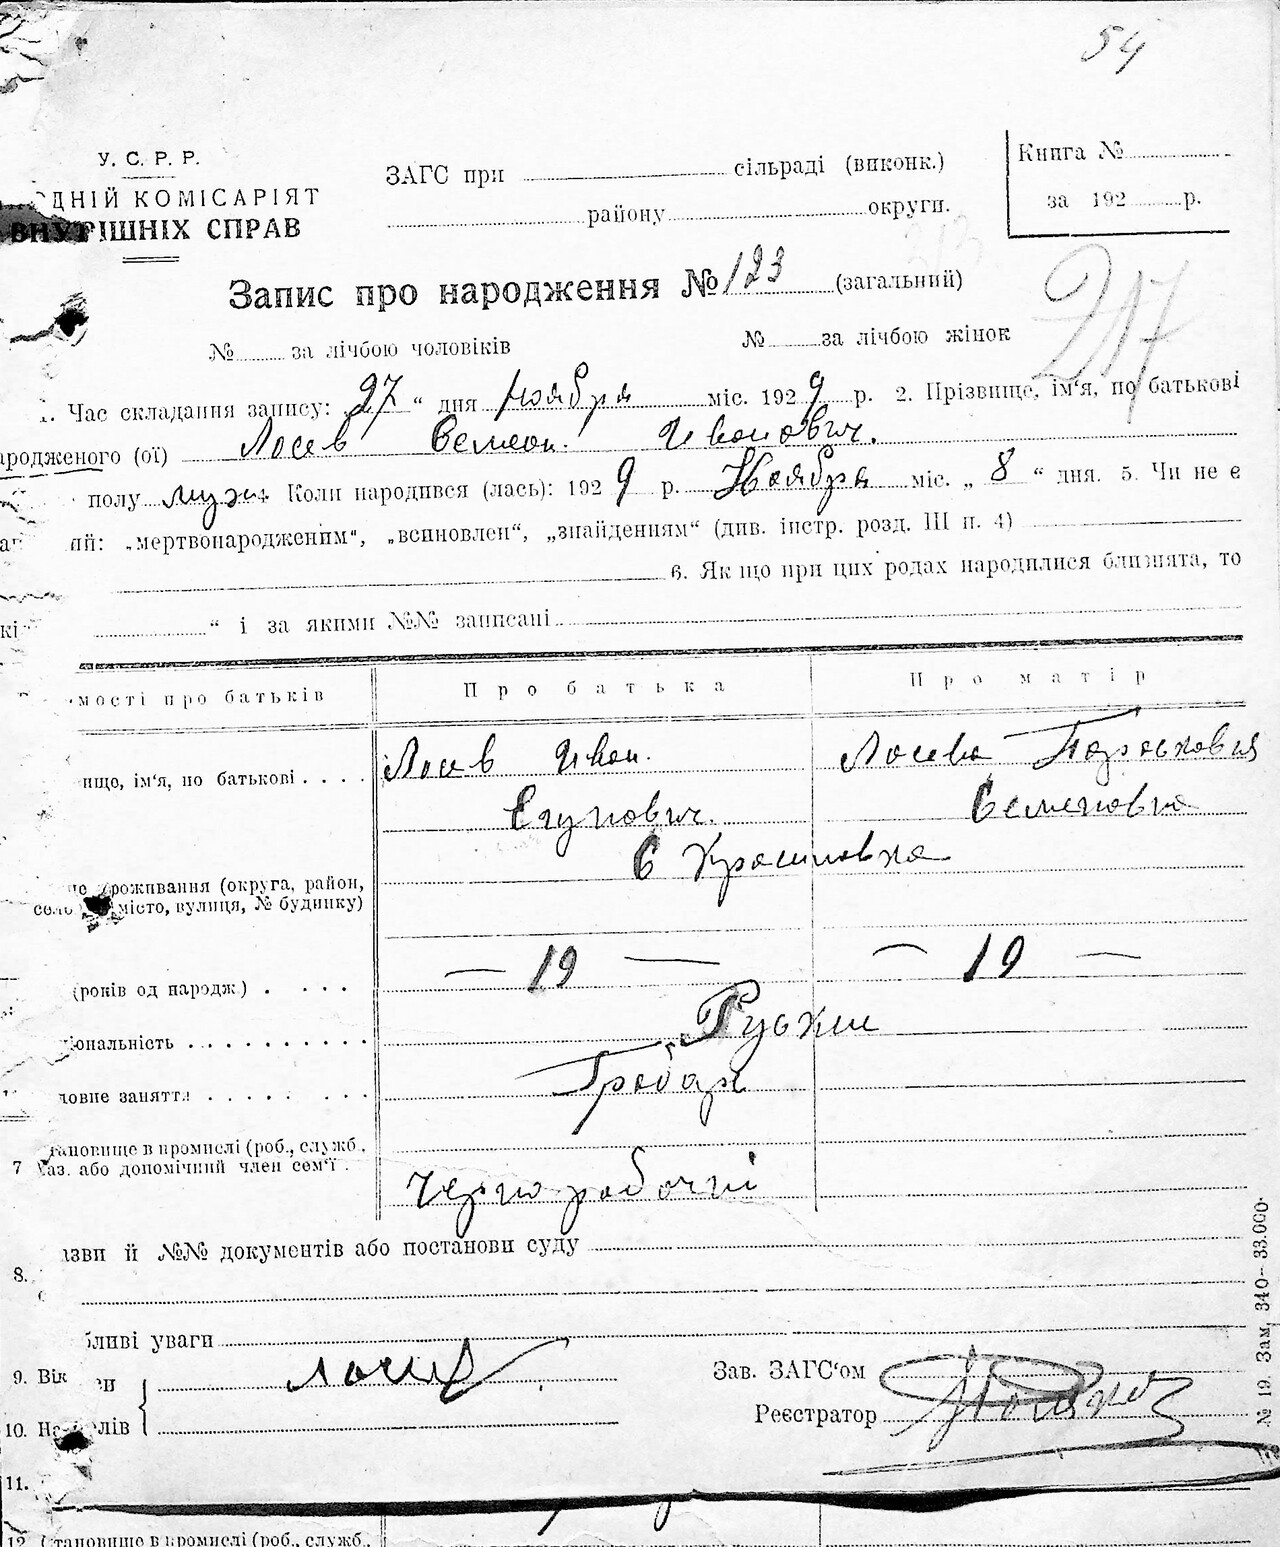 54
У. С. Р. Р.
ОДНІЙ КОМІСАРІЯТ
ВНУТРІШНІХ СПРАВ
ЗАГС при сільраді (виконк.)
району округи.
Книга №
за 192 р.
Запис про народження № 123 (загальний)
217
№ за лічбою чоловіків № за лічбою жінок
1. Час складання запису: 27 “ дня ноября міс. 1929 р. 2. Прізвище, ім‘я, по батькові
ародженого (ої) Лосев Семеон. Иванович.
полу муж. 4. Коли народився (лась): 1929 р. Ноября міс. „ 8 “ дня. 5. Чи не є
ий: „мертвонародженим“, „всиновлен“, „знайденням“ (див. інстр. розд. III п. 4)
6. Як що при цих родах народилися близнята, то
кі “ і за якими №№ записані
мості про батьків Про батька Про матір
ище, ім‘я, по батькові . . . . Лосев Иван. Лосева Парасковия
Егупович. Семеновна
С Крашновка
це проживання (округа, район,
село, місто, вулиця, № будинку)
(років од народж.) . . . . — 19 — — 19 —
іональність . . . . . . . . . . Руськи
ловне заняття . . . . . . . . Грабарь
тановище в промислі (роб., служб.,
7 аз. або допомічний член сем‘ї . Чернорабочий
азви й №№ документів або постанови суду
8.
бливі уваги
9. Вік ен Лосев Зав. ЗАГС‘ом
10. На лів Реєстратор
11.
№ 19. Зам. 340—33.000.
12 (тановище в промислі (роб., служб.,